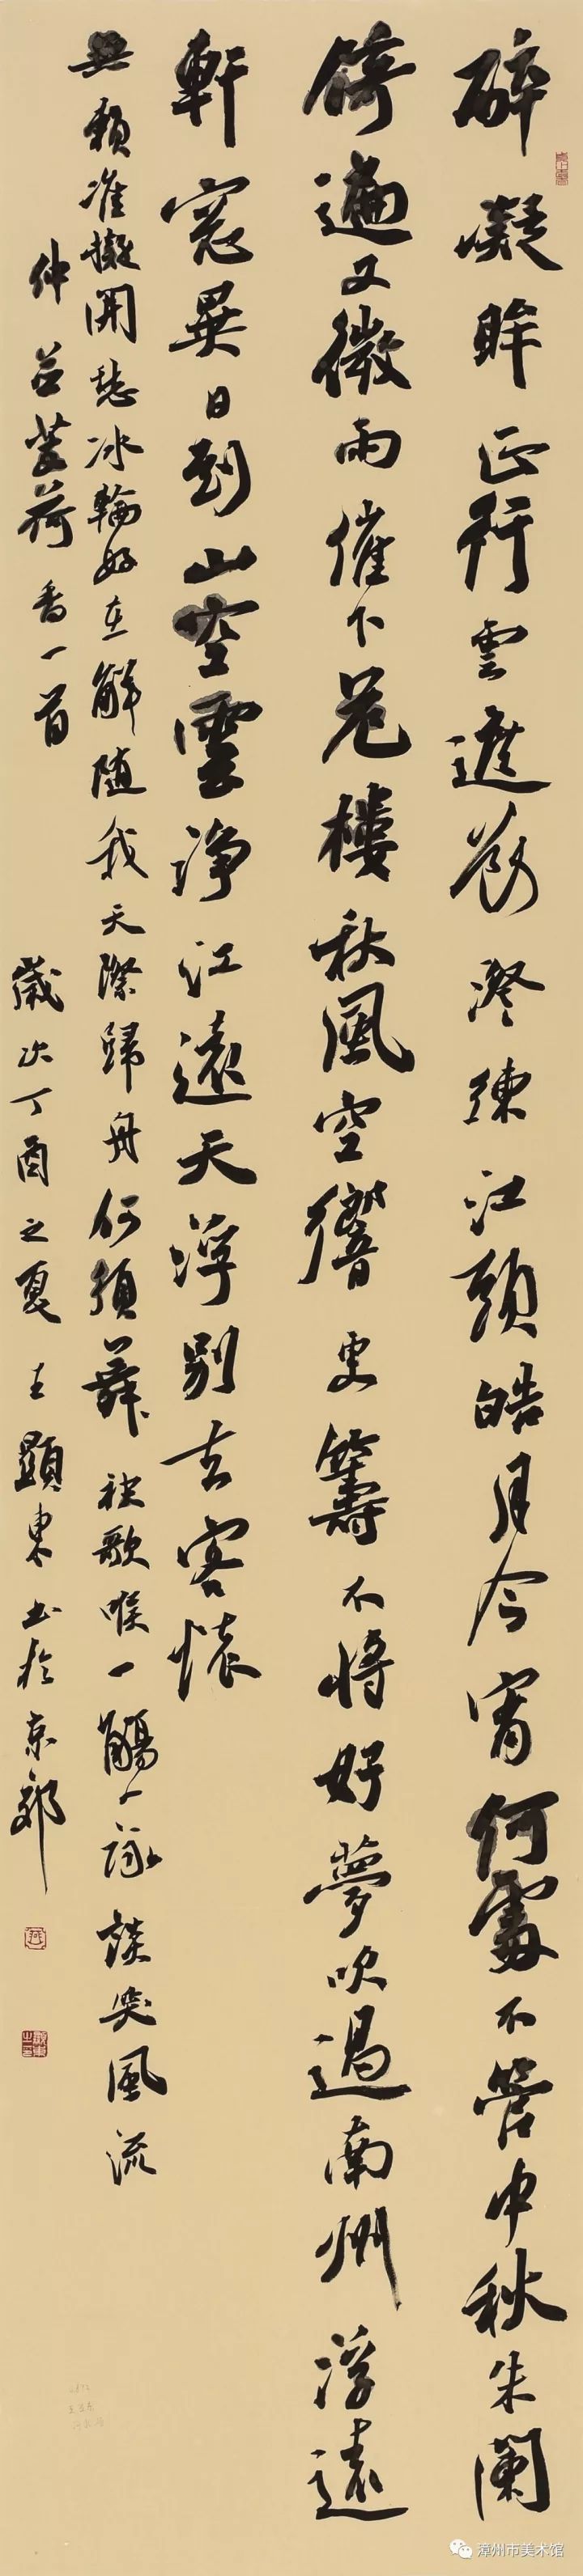 醉凝眸正行雲遮斷澄練江頭皓月今宵何處不管中秋朱闌
倚遍又微雨催下危樓秋風空響更籌不將好夢吹過南州浮遠
軒窓異日到山空雲淨江遠天浮別去客懷
無賴准擬開愁冰輪好在解随我天際歸舟何須舞袂歌喉一觴一詠談笑風流
仲并芰荷香一首
歲次丁酉之夏王顯東书於京郊
漳州市美术馆